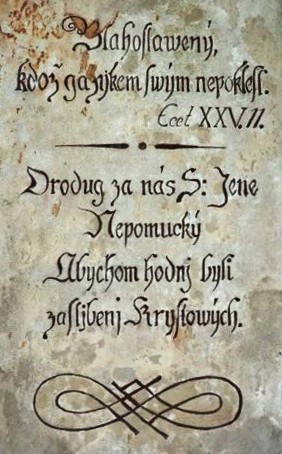 Blahoslawený,
kdož gazykem swým nepoklesl.
Ecel XXV. 11.
Orodug za nás S: Jene
Nepomucký
Abychom hodnj byli
zasljbenj Krystowých.